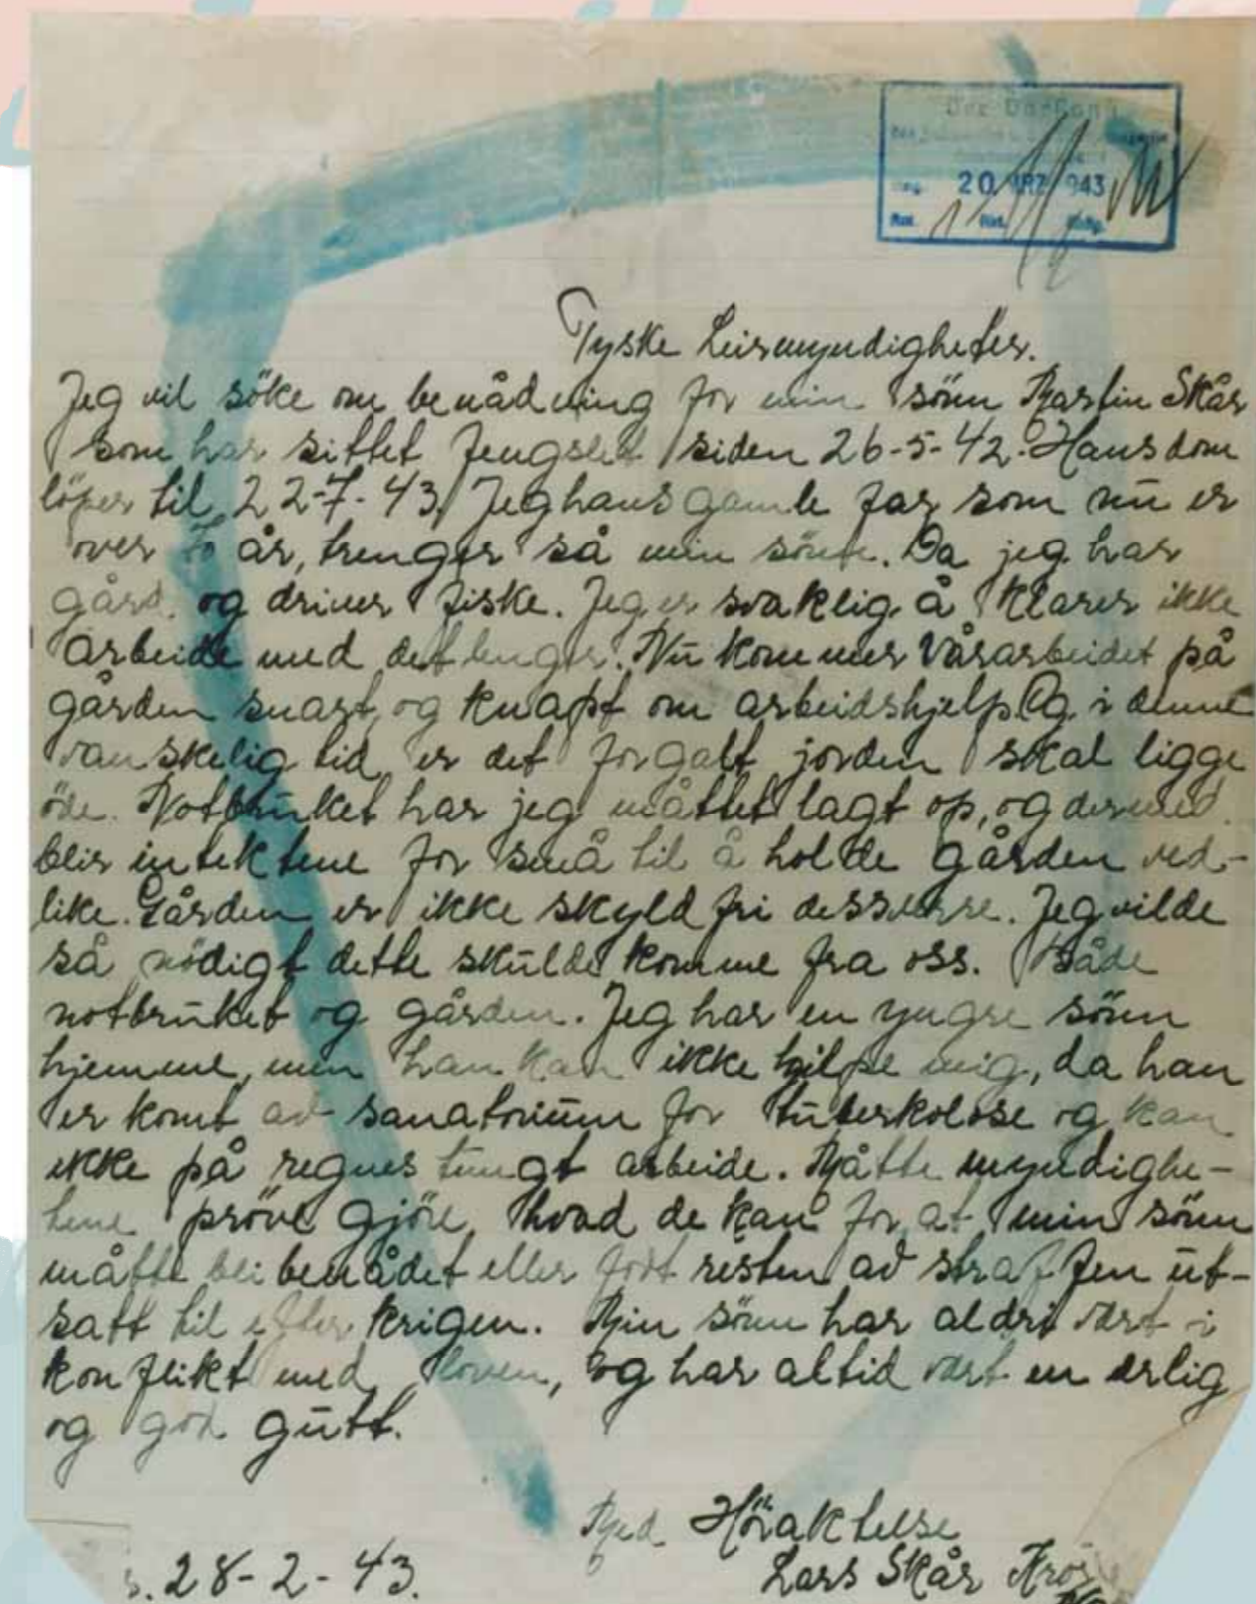 20 MRZ 1943
Tyske Leirmyndigheter.
Jeg vil söke om benådning for min sönn Martin Skår
som har sittet fengslet siden 26-5-42. Hans dom
löper til 22-7-43. Jeg hans gamle far som nu er
over år, trenger så min sönn. Da jeg har
gård og driver fiske. Jeg er svaklig å klarer ikke
arbeide med det lenger. Nu kommer Vårarbeidet på
gården snart, og knapt om arbeidshjelp. Og i denne
vanskelig tid er det forgalt jorden skal ligge
öde. Notbruket har jeg måttet lagt op, og dermed
blir intektene for små til å holde gården ved-
like. Gården er ikke skyldfri dessverre. Jeg vilde
så nödigt dette skulde komme fra oss. Både
notbruket og gården. Jeg har en yngre sönn
hjemme, men han kan ikke hilpe mig, da han
er komt av sanatorium for tuberkolose og kan
ikke på regnes tungt arbeide. Måtte myndighe-
tene pröve gjöre, hvad de kan for at min sönn
måtte bli benådet eller fått resten av straffen ut-
satt til efter krigen. Min sönn har aldri vært i
konflikt med loven, og har altid vært en ærlig
og god gutt.
Med Höiaktelse
28-2-43. Lars Skår